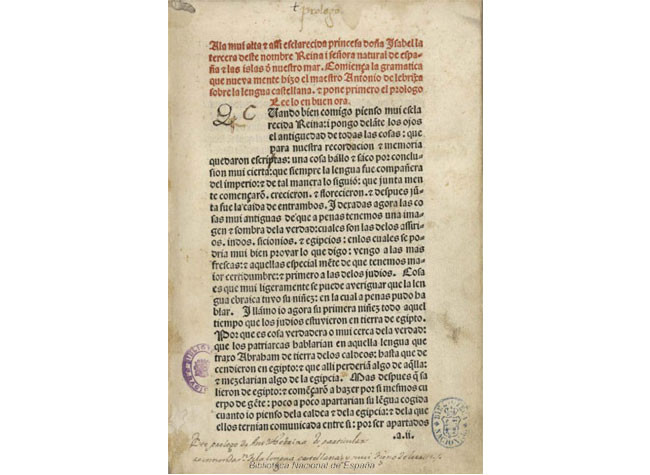 prologo
A la mui alta ⁊ assi esclarecida princesa doña Isabel la
tercera deste nombre Reina i señora natural de espa-
ña ⁊ las islas ð nuestro mar. Comiença la gramatica
que nueva mente hizo el maestro Antonio de lebrixa
sobre la lengua castellana. ⁊ pone primero el prologo
Lee lo en buen ora.
CUando bien comigo pienso mui escla
recida Reina: i pongo delãte los ojos
el antiguedad de todas las cosas: que
para nuestra recordacion ⁊ memoria
quedaron escriptas: una cosa hállo ⁊ sáco por conclu-
sion mui cierta: que siempre la lengua fue compañera
del imperio: ⁊ de tal manera lo siguió: que junta men
te començarõ. crecieron. ⁊ florecieron. ⁊ despues jũ
ta fue la caida de entrambos. I dexadas agora las co
sas mui antiguas de que a penas tenemos una ima-
gen ⁊ sombra dela verdad: cuales son las delos assiri-
os. indos. sicionios. ⁊ egipcios: enlos cuales se po-
dria mui bien provar lo que digo: vengo a las mas
frescas: ⁊ aquellas especial mẽte de que tenemos ma-
ior certidumbre: ⁊ primero a las delos judios. Cosa
es que mui ligeramente se puede averiguar que la len
gua ebraica tuvo su niñez: en la cual a penas pudo ha
blar. I llámo io agora su primera niñez todo aquel
tiempo que los judios estuvieron en tierra de egipto.
Por que es cosa verdadera o mui cerca dela verdad:
que los patriarcas hablarian en aquella lengua que
traxo Abraham de tierra delos caldeos: hasta que de
cendieron en egipto: ⁊ que alli perderiã algo de aq̃lla:
⁊ mezclarian algo de la egipcia. Mas despues q̃ sa
lieron de egipto: ⁊ começarõ a hazer por si mesmos cu
erpo de gẽte: poco a poco apartarian su lẽgua cogida
cuanto io pienso dela caldea ⁊ dela egipcia: ⁊ dela que
ellos ternian comunicada entre si: por ser apartados
.a.ii.
Biblioteca Nacional de España